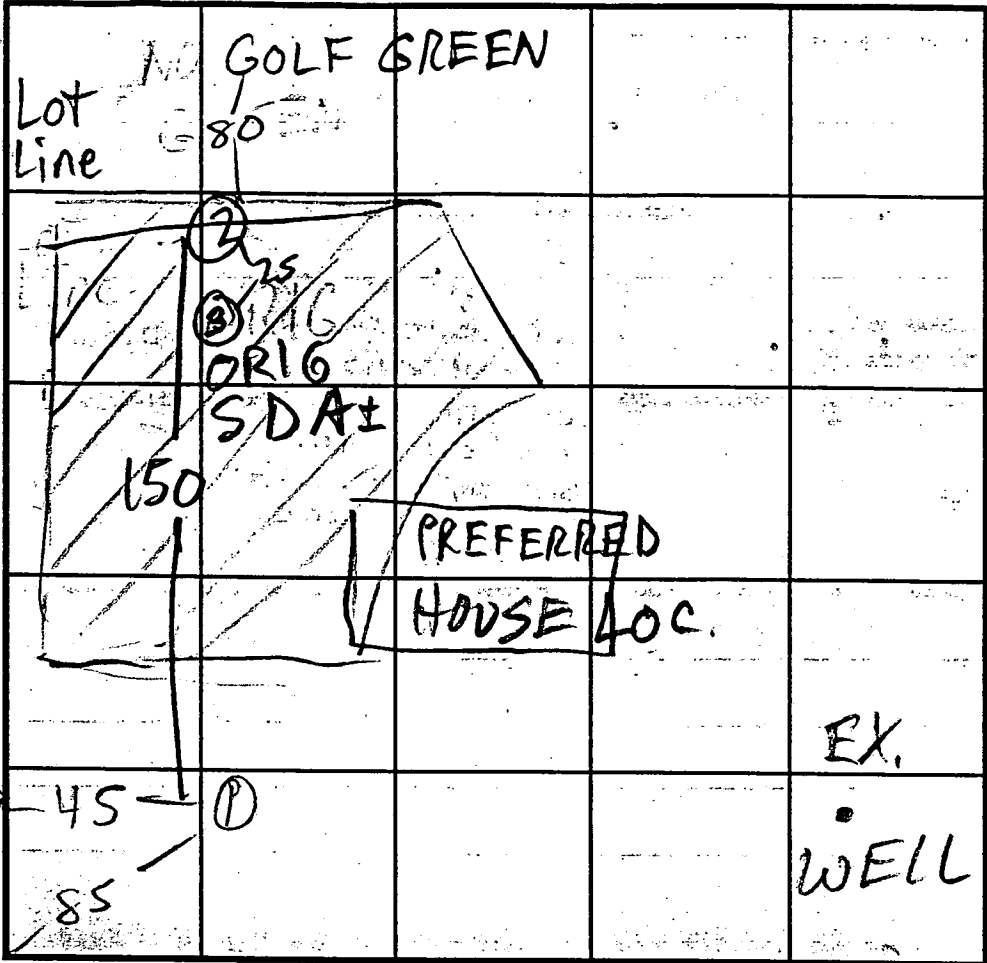 GOLF GREEN
Lot
Line
80
2
25
3
ORIG
SDA±
150
PREFERRED
HOUSE LOC.
EX.
WELL
-45
1
85